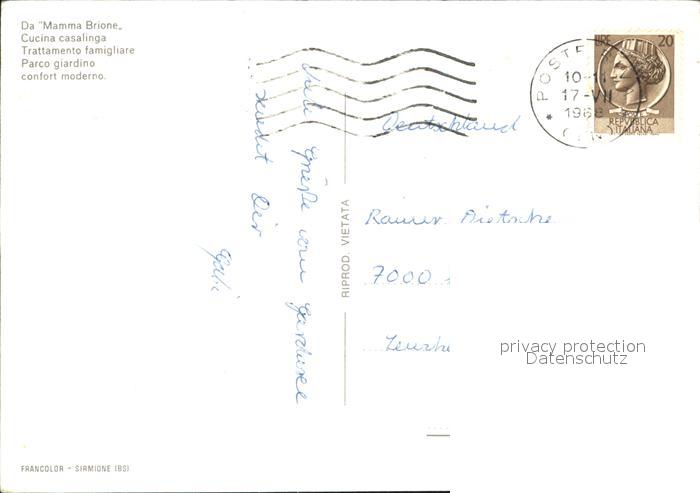 Da "Mamma Brione„
Cucina casalinga
Trattamento famigliare
Parco giardino
confort moderno.
Liebe Grüße vom Gardasee
sendet Dir
Gabi
RIPROD. VIETATA
POSTE
10-11
17-VII
1968
LIRE 20
REPVBBLICA
ITALIANA
Deutschland
Rainer
7000
privacy protection
Datenschutz
FRANCOLOR - SIRMIONE (BS)